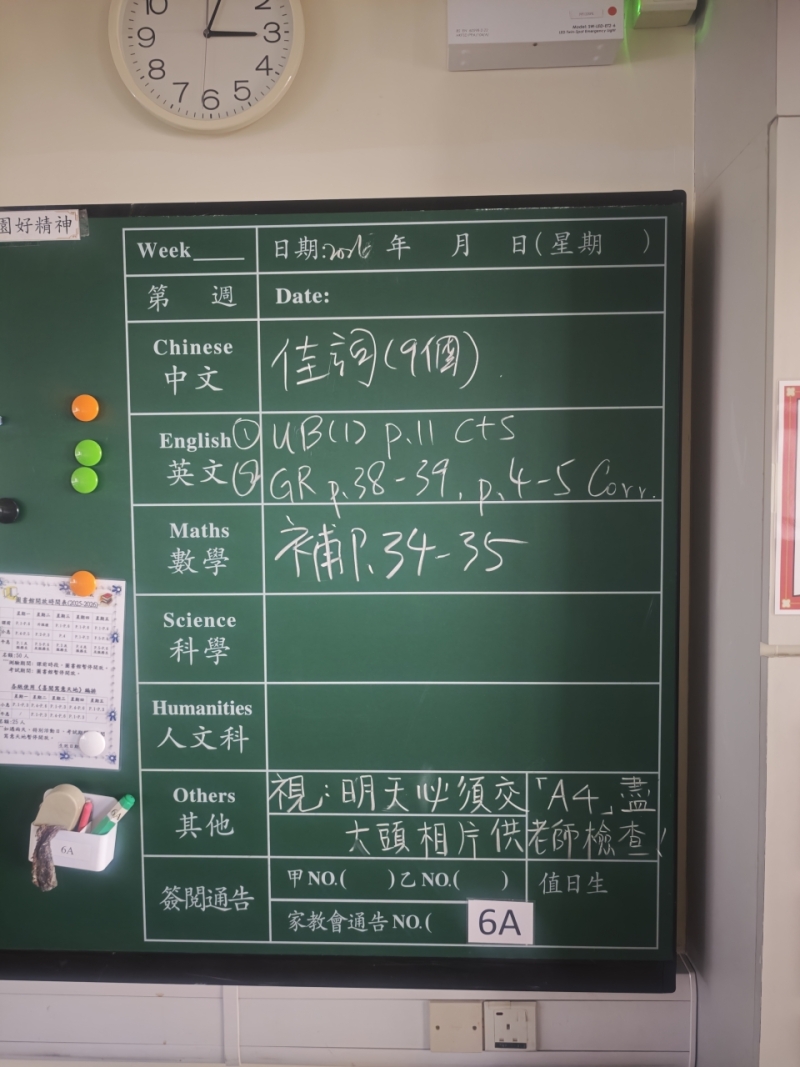 10
9
8
7
6
5
4
3
園好精神
Week____ 日期:2026年 月 日(星期 )
第 週 Date:
Chinese
中文
佳詞(9個)
English
英文
① UB(1) p.11 C+S
② GR p.38-39, p.4-5 Corr.
Maths
數學
補P.34-35
Science
科學
Humanities
人文科
Others
其他
視:明天必須交「A4」盡
大頭相片供老師檢查!
簽閱通告
甲NO.( )乙NO.( ) 值日生
家教會通告NO.(
6A
圖書館開放時間表(2025-2026)
星期一 星期二 星期三 星期四 星期五
6A